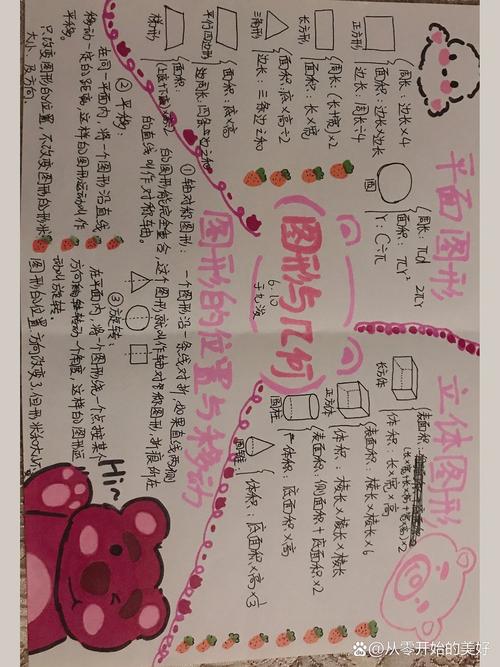 平面图形
正方形
周长：边长×4
面积：边长×边长
边长：周长÷4
长方形
周长：(长+宽)×2
面积：长×宽
三角形
面积：底×高÷2
边长：三条边之和
平行四边形
面积：底×高
周长：四条边之和
梯形
面积：
(上底+下底)×高÷2
圆
周长：πd 2πr
面积：πr²
r：C÷π
立体图形
长方体
表面积：
(长×宽+长×高+宽×高)×2
体积：长×宽×高
正方体
表面积：棱长×棱长×6
体积：棱长×棱长×棱长
圆柱
表面积：侧面积+底面积×2
体积：底面积×高
圆锥
体积：底面积×高×1/3
(图形与几何)
6.10
图形的位置与移动
①轴对称图形：一个图形沿一条线对折，如果直线两侧
的图形能完全重合，这个图形就叫作轴对称图形，折痕所在
的直线叫作对称轴。
②平移：
在同一平面内，将一个图形沿直线
移动一定的距离，这样的图形运动叫作
平移。
只改变图形的位置，不改变图形的形状
大小及方向
③旋转
在平面内，将一个图形绕一个点按某个
方向转动一个角度，这样的图形运
动叫旋转
图形的位置方向改变了，但形状大小
Hi~
@从零开始的美好